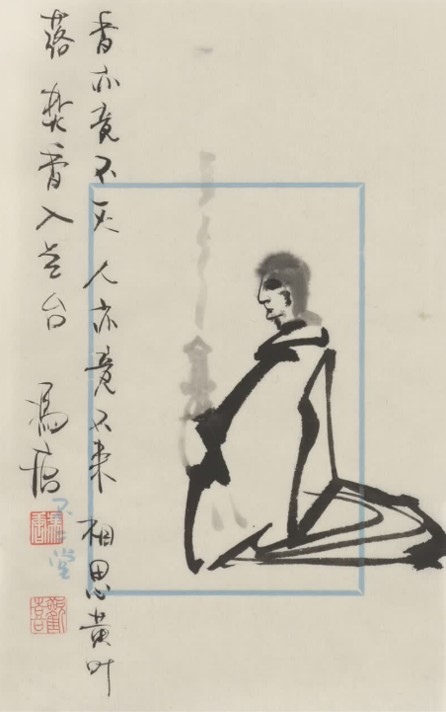 香亦竟不灭 人亦竟不来 相思黄叶
落 焚香入台 冯唐
不二堂